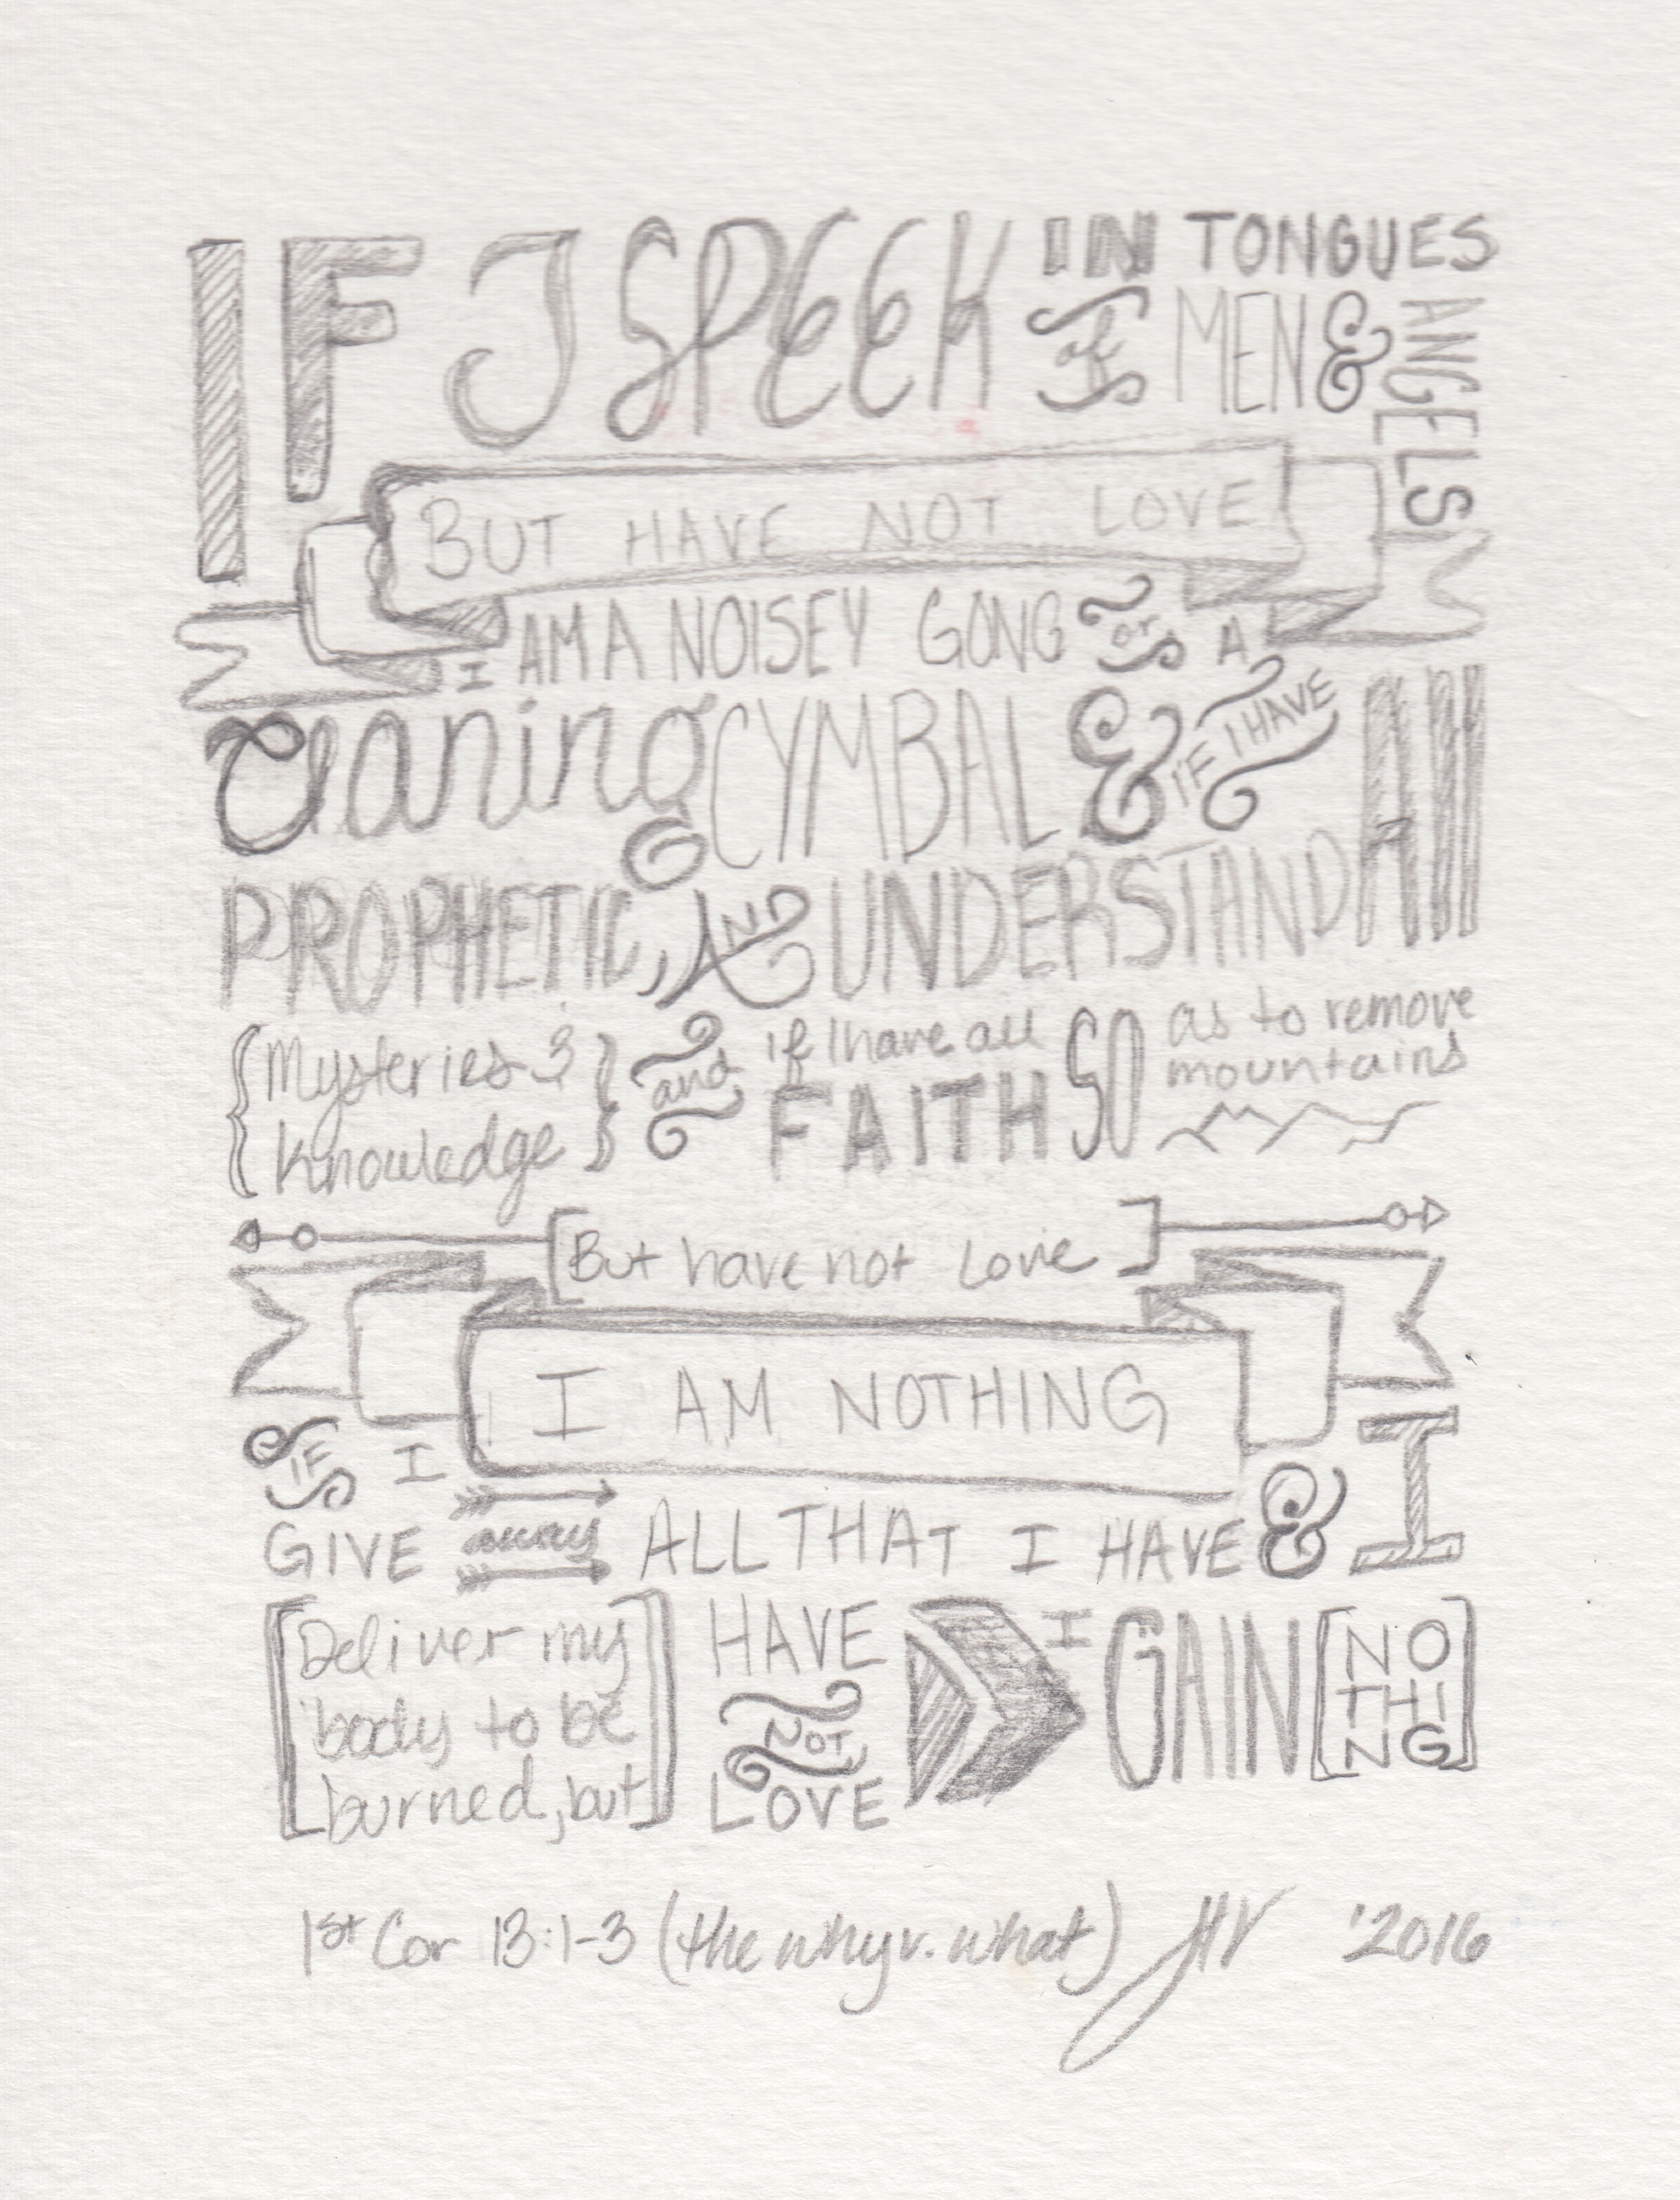 IF I SPEEK IN TONGUES
of MEN & ANGELS
BUT HAVE NOT LOVE
I AM A NOISEY GONG or A
Claning CYMBAL & IF I HAVE All
PROPHETIC, AND UNDERSTAND
{Mysteries &
Knowledge} and if I have all
FAITH SO as to remove
mountains
[But have not Love]
I AM NOTHING
IF I
GIVE away ALL THAT I HAVE & I
[Deliver my
body to be
burned, but]
HAVE
NOT
LOVE
I GAIN [NO
THI
NG]
1st Cor 13:1-3 (the why v. what) JHV '2016